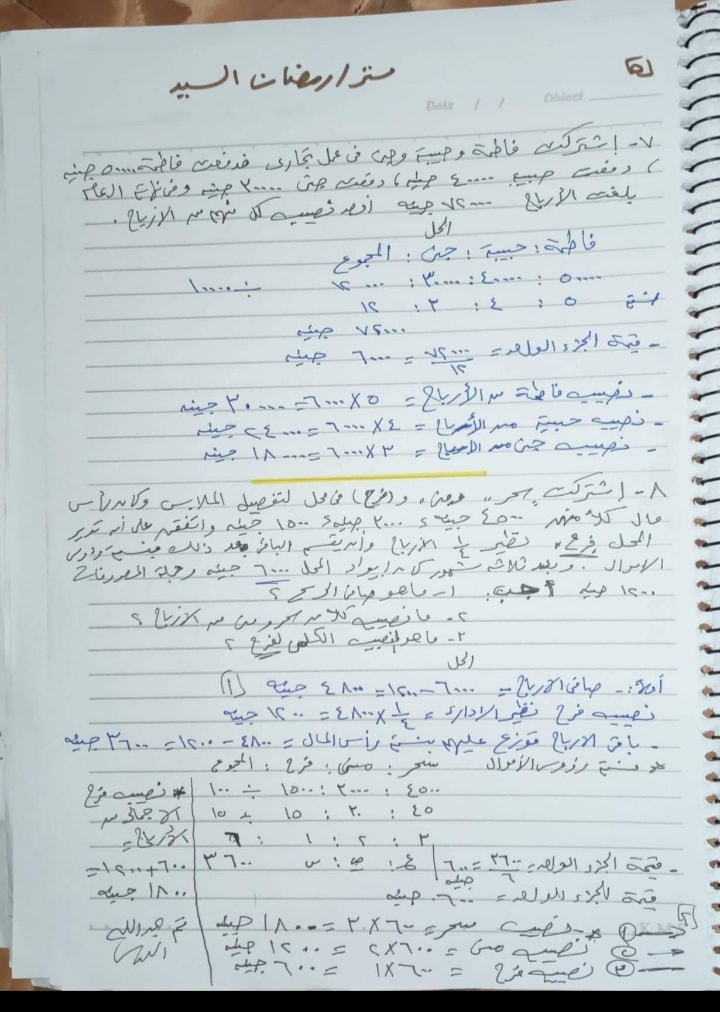 مستر / رمضان السيد
Date / / Object
٧- إشتركت فاطمة وحبيبة وجنى فى عمل تجارى فدفعت فاطمة ٥٠٠٠٠ جنيه
، دفعت حبيبة ٤٠٠٠٠ جنيه ، دفعت جنى ٣٠٠٠٠ جنيه وفى نهاية العام
بلغت الأرباح ٧٢٠٠٠ جنيه نصيب كل منهم من الأرباح .
الحل
فاطمة : حبيبة : جنى : المجموع
٥٠٠٠٠ : ٤٠٠٠٠ : ٣٠٠٠٠ : ١٢٠٠٠٠ ÷ ١٠٠٠٠
٥ : ٤ : ٣ : ١٢
٧٢٠٠٠ جنيه
- قيمة الجزء الواحد = ٧٢٠٠٠ / ١٢ = ٦٠٠٠ جنيه
- نصيب فاطمة من الأرباح = ٥ × ٦٠٠٠ = ٣٠٠٠٠ جنيه
- نصيب حبيبة من الأرباح = ٤ × ٦٠٠٠ = ٢٤٠٠٠ جنيه
- نصيب جنى من الأرباح = ٣ × ٦٠٠٠ = ١٨٠٠٠ جنيه
٨- إشتركت سحر ومنى و (فرح) فى محل لتفصيل الملابس وكان رأس
مال كلاً منهن ٤٥٠٠ جنيه ، ٣٠٠٠ جنيه ، ١٥٠٠ جنيه واتفقن على أن تدير
المحل فرح نظير ١/٤ الأرباح وأن يقسم الباقى بعد ذلك بنسبة رؤوس
الأموال . وبعد ثلاثة شهور كان إيراد المحل ٦٠٠٠ جنيه وجملة المصروفات
١٢٠٠ جنيه أجب : ١- ما هو صافى الربح ؟
٢- ما نصيب كلا من سحر ومنى من الأرباح ؟
٣- ما هو النصيب الكلى لفرح ؟
الحل
أولاً :- صافى الأرباح = ٦٠٠٠ - ١٢٠٠ = ٤٨٠٠ جنيه (١)
نصيب فرح نظير الإدارة = ١/٤ × ٤٨٠٠ = ١٢٠٠ جنيه
- باقى الأرباح توزع عليهم بنسبة رأس المال = ٤٨٠٠ - ١٢٠٠ = ٣٦٠٠ جنيه
* نسبة رؤوس الأموال سحر : منى : فرح : المجموع
٤٥٠٠ : ٣٠٠٠ : ١٥٠٠ ÷ ١٠٠
٤٥ : ٣٠ : ١٥ ÷ ١٥
٣ : ٢ : ١ : ٦
ع : ص : س ٣٦٠٠
- قيمة الجزء الواحد = ٣٦٠٠ / ٦ = ٦٠٠ جنيه
قيمة الجزء الواحد = ٦٠٠ جنيه
(١) نصيب سحر = ٦٠٠ × ٣ = ١٨٠٠ جنيه
(٢) نصيب منى = ٦٠٠ × ٢ = ١٢٠٠ جنيه
(٣) نصيب فرح = ٦٠٠ × ١ = ٦٠٠ جنيه
* نصيب فرح
الإجمالى من
الأرباح =
٦٠٠ + ١٢٠٠ =
١٨٠٠ جنيه
تم بحمد الله